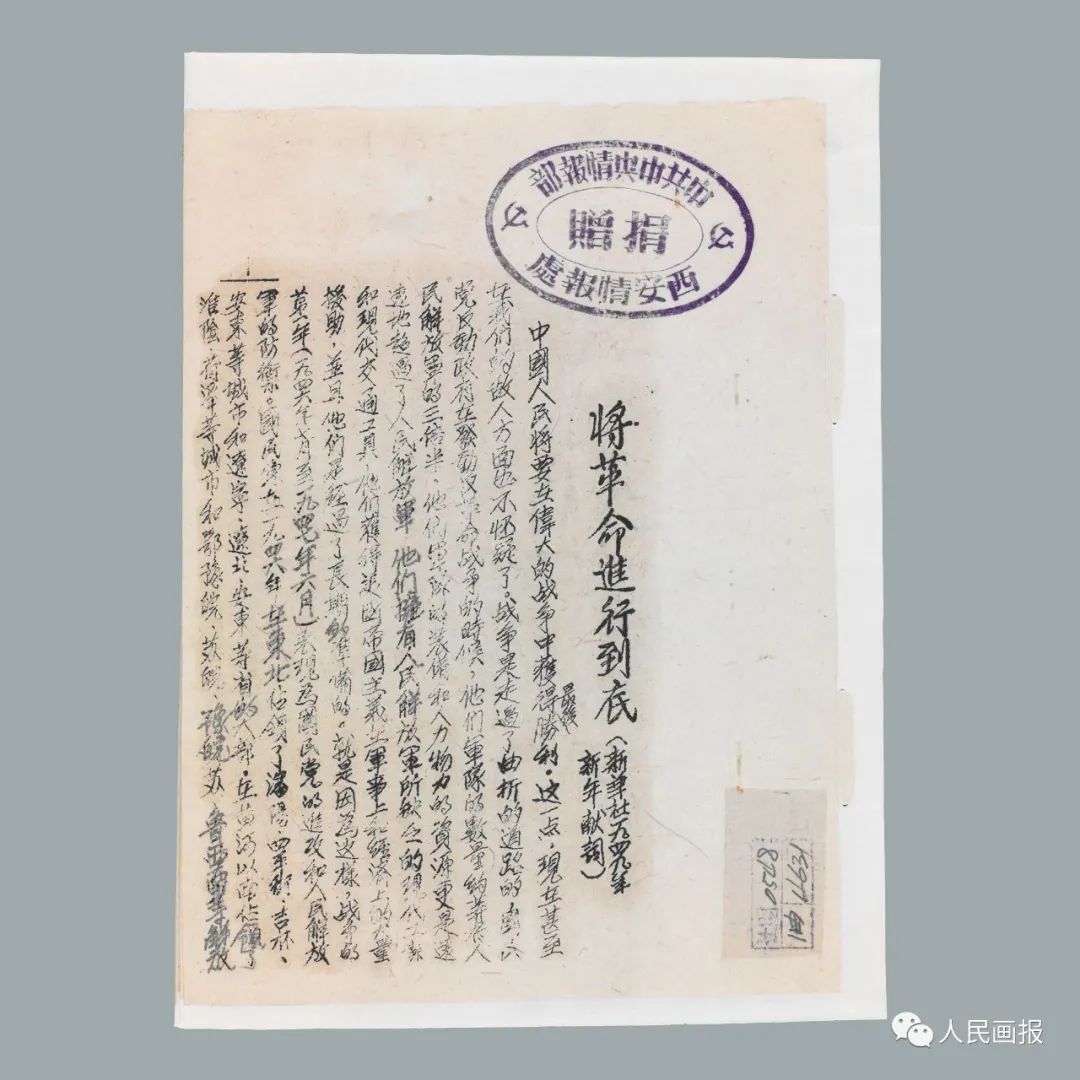 中共中央情報部
捐贈
西安情報處
將革命進行到底(新華社一九四九年
新年献詞)
中國人民將要在偉大的战争中獲得最後勝利,这一点,現在甚至
在我們的敌人方面也不怀疑了。战争是走過了曲折的道路的。國民
党反動政府在發動反革命战争的時候,他們軍隊的數量約等於人
民解放軍的三倍半,他們軍隊的裝備和人力物力的資源更是遠
遠地超過了人民解放軍,他們擁有人民解放軍所缺乏的現代工業
和現代交通工具,他們獲得美國帝國主義在軍事上和經濟上的大量
援助,並且他們是經過了長期的準備的。就是因為这樣,战争的
第一年(一九四六年七月至一九四七年六月)表現為國民党的進攻和人民解放
軍的防衛。國民党在一九四六年在東北佔領了瀋陽、四平街、吉林、
安東等城市和遼寧、遼北、安東等省的大部,在黄河以南佔領了
淮陰、菏澤等城市和鄂豫皖、苏皖、豫皖苏、魯西南等解放
87250
人民画报